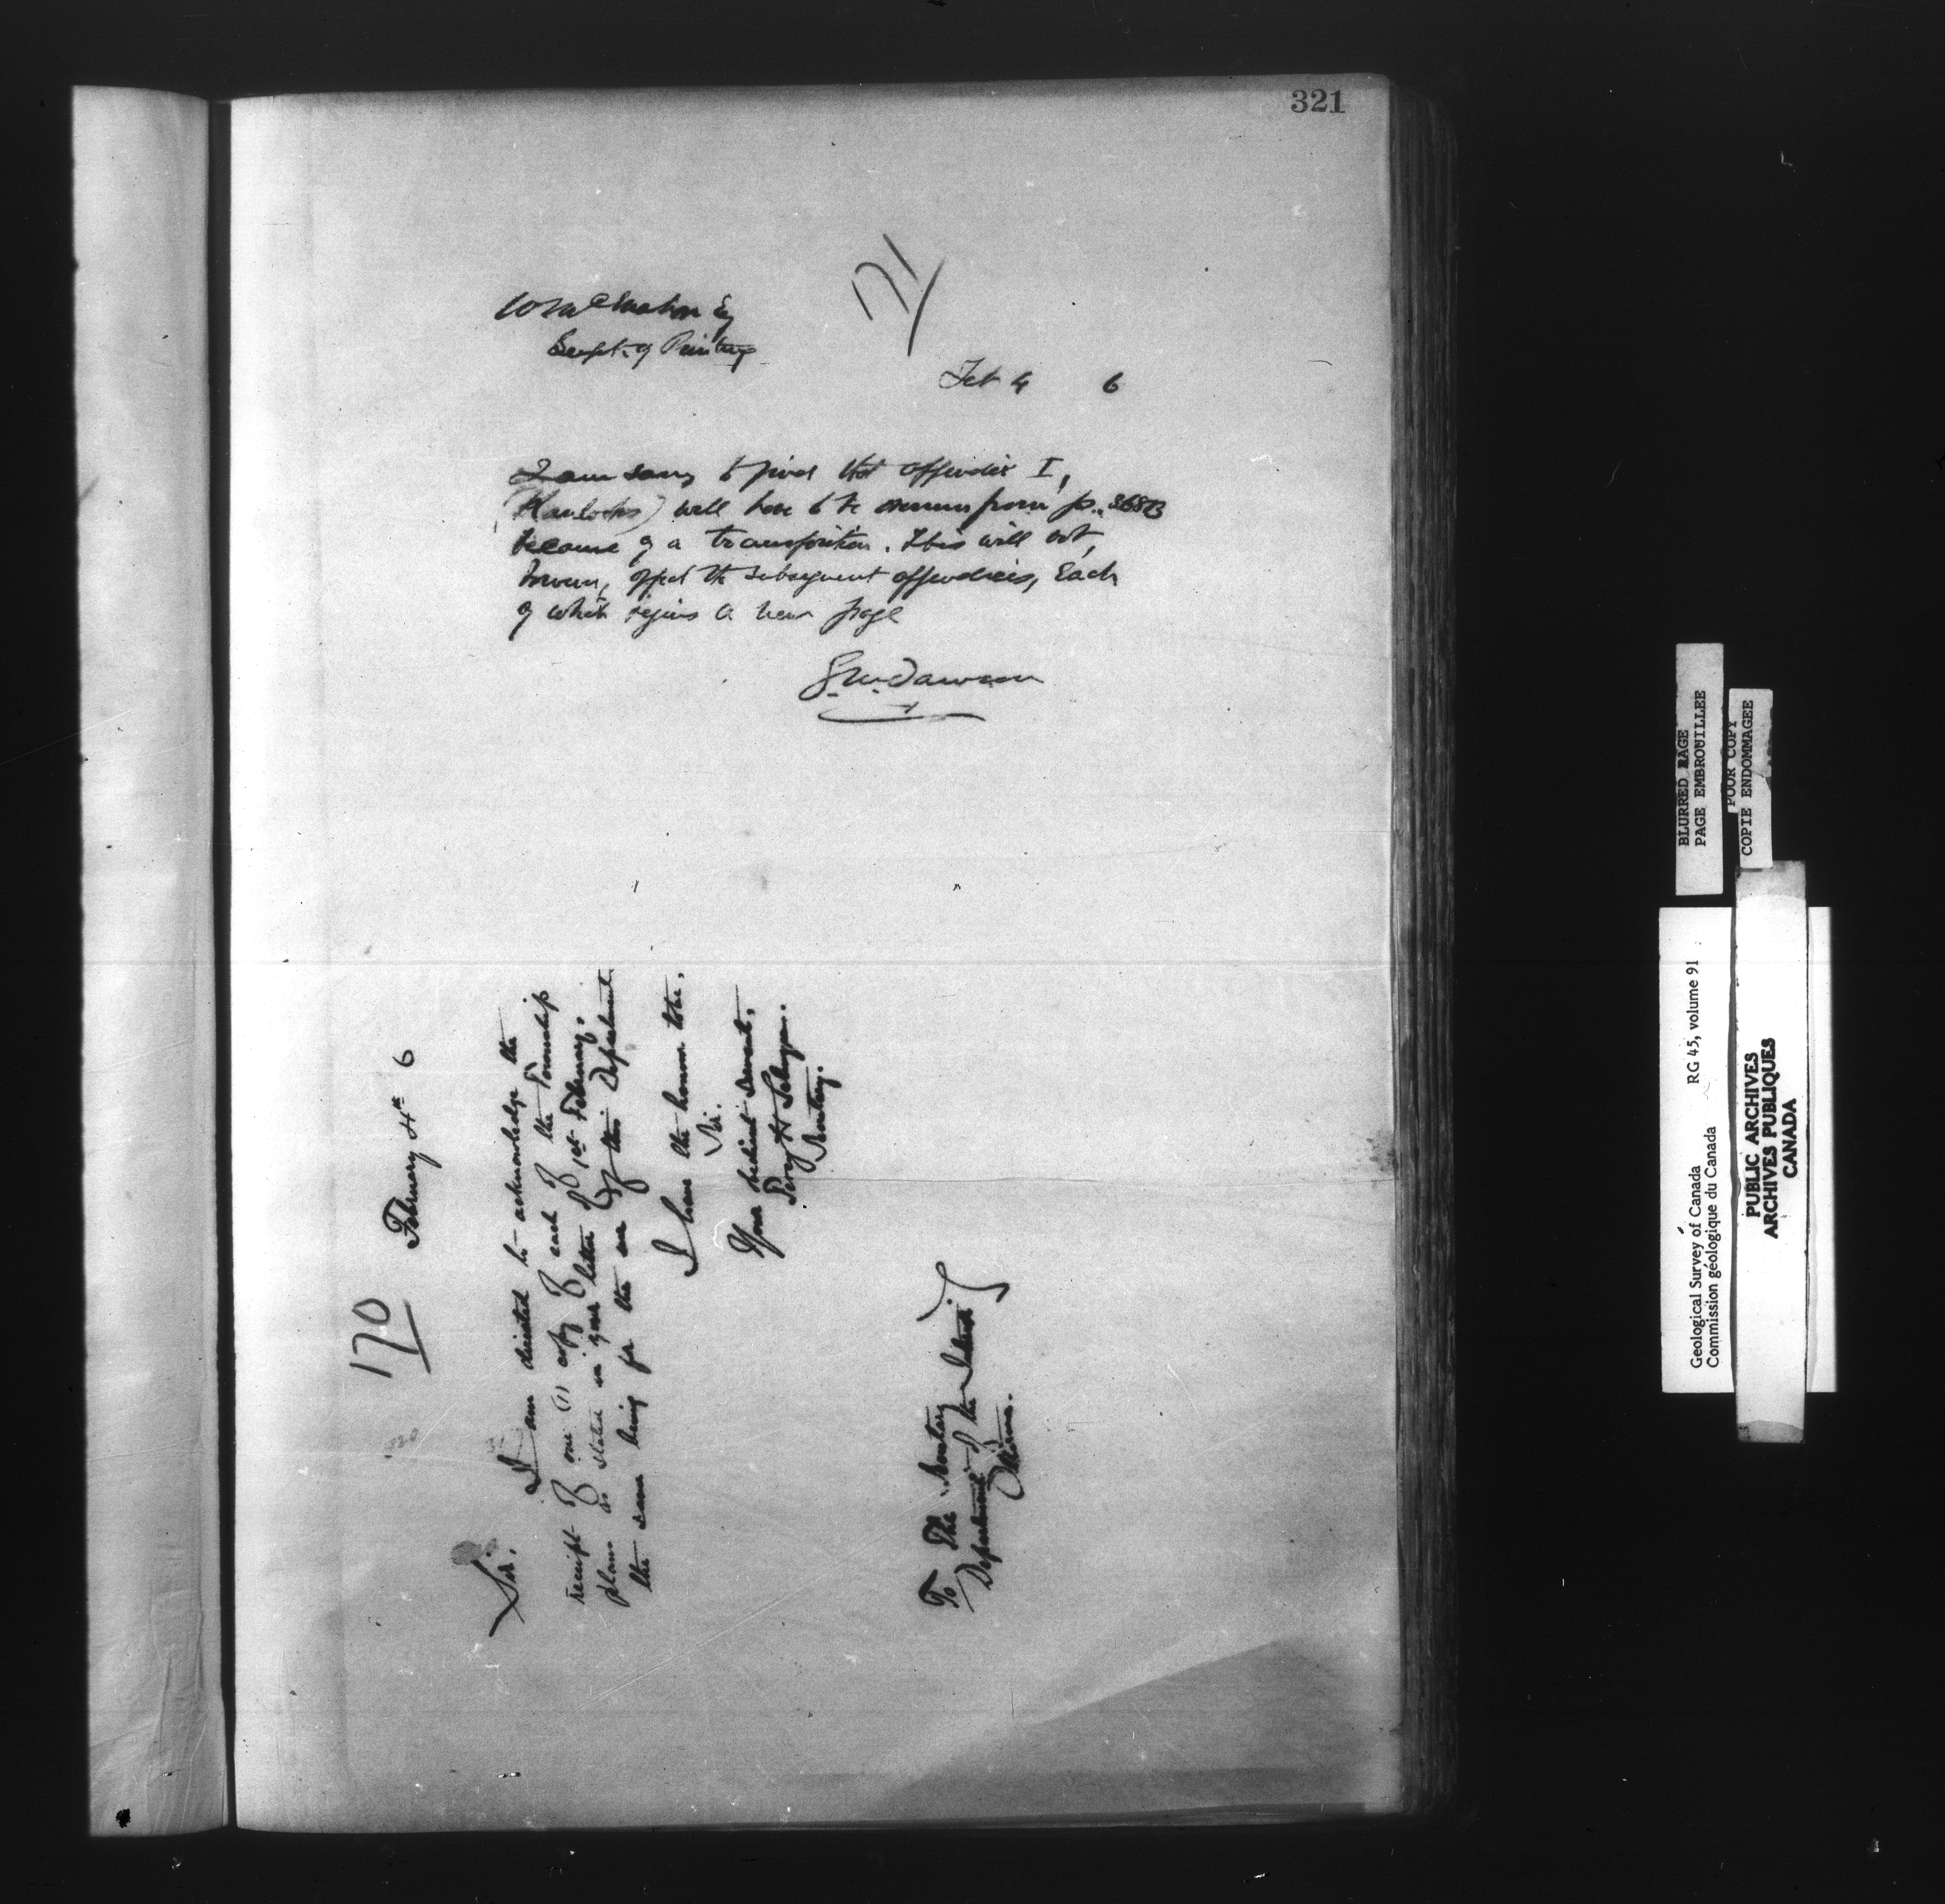 321
171
W McMahon Esq
Supt. of Printing
Feb 4 6
I am sorry to find that appendix I,
will have to be overrun from p. 368B
because of a transposition. This will not,
however, affect the subsequent appendices, each
of which begins a new page
G.M. Dawson
170
February 4th 6
Sir.
I am directed to acknowledge the
receipt of one (1) copy of each of the Township
plans as stated in your letter of 1st February.
the same being for the use of this Department.
I have the honour to be,
Sir.
Your obedient servant,
Percy H Selwyn.
Secretary.
To The Secretary
Department of the Interior
Ottawa.
BLURRED PAGE
PAGE EMBROUILLEE
POOR COPY
COPIE ENDOMMAGEE
Geological Survey of Canada RG 45, volume 91
Commission géologique du Canada
PUBLIC ARCHIVES
ARCHIVES PUBLIQUES
CANADA